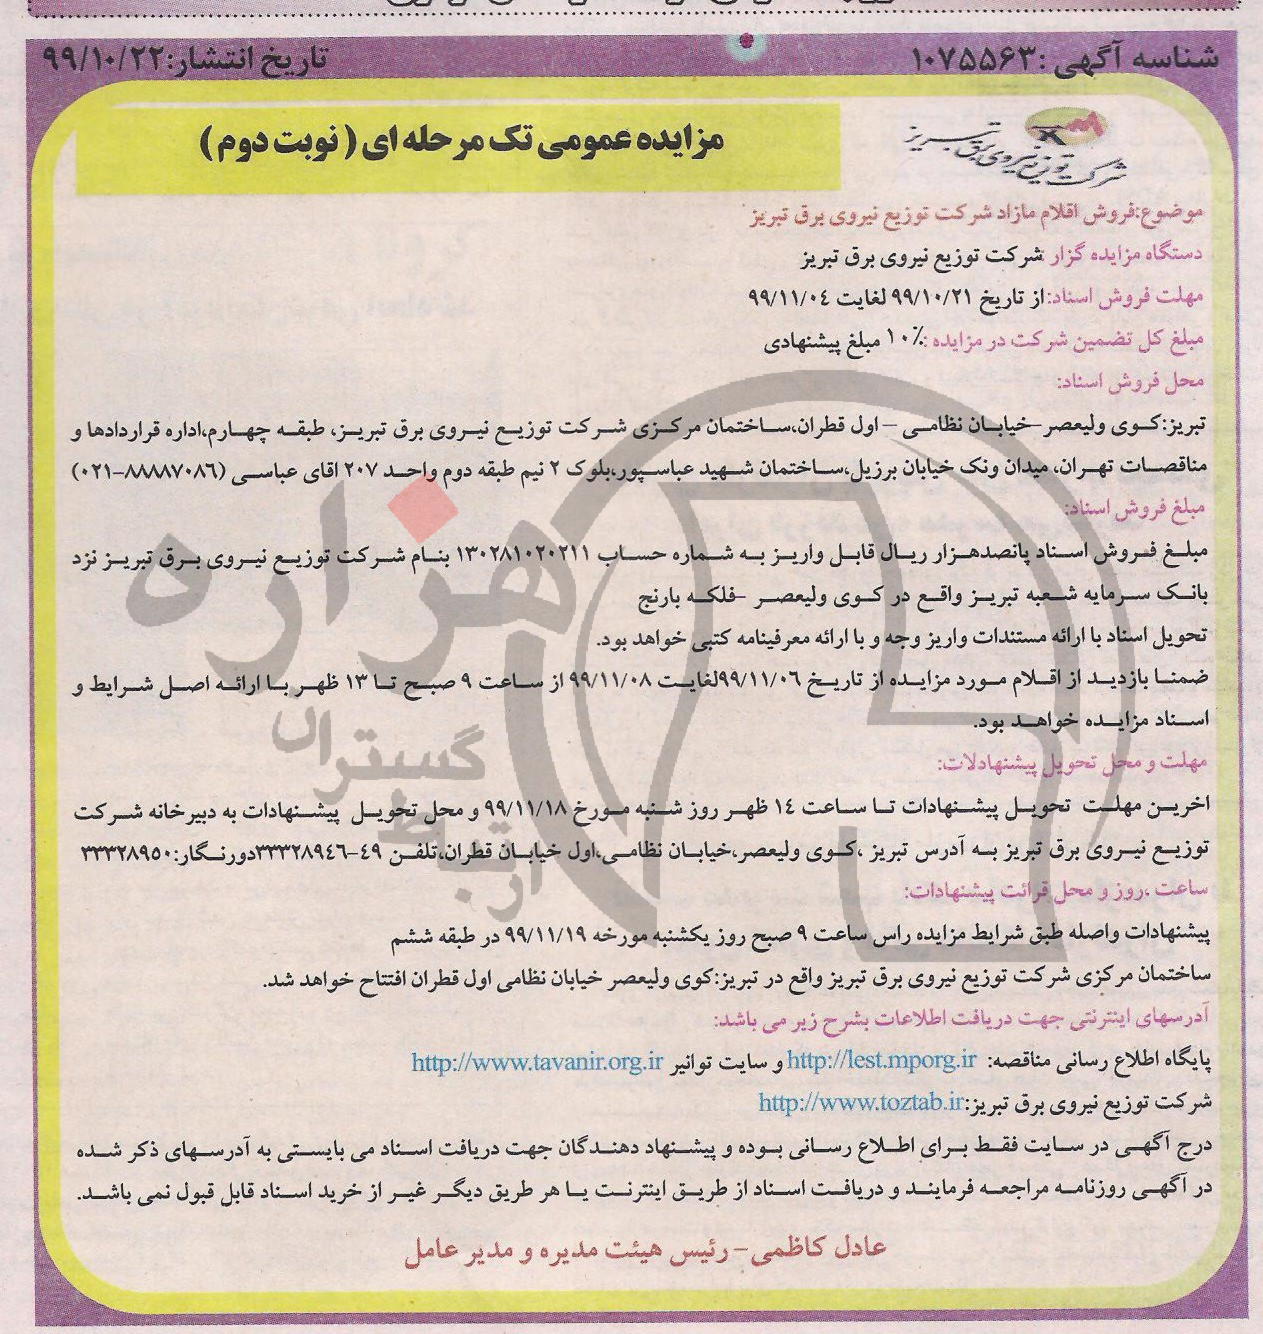 شناسه آگهی :۱۰۷۵۵۶۳
تاریخ انتشار:۹۹/۱۰/۲۲
شرکت توزیع نیروی برق تبریز
مزایده عمومی تک مرحله ای ( نوبت دوم )
موضوع:فروش اقلام مازاد شرکت توزیع نیروی برق تبریز
دستگاه مزایده گزار شرکت توزیع نیروی برق تبریز
مهلت فروش اسناد:از تاریخ ۹۹/۱۰/۲۱ لغایت ۹۹/۱۱/۰۴
مبلغ کل تضمین شرکت در مزایده :۱۰٪ مبلغ پیشنهادی
محل فروش اسناد:
تبریز:کوی ولیعصر-خیابان نظامی – اول قطران،ساختمان مرکزی شرکت توزیع نیروی برق تبریز، طبقه چهارم،اداره قراردادها و
مناقصات تهران، میدان ونک خیابان برزیل،ساختمان شهید عباسپور،بلوک ۲ نیم طبقه دوم واحد ۲۰۷ اقای عباسی (۸۸۸۸۷۰۸۶-۰۲۱)
مبلغ فروش اسناد:
مبلغ فروش اسناد پانصدهزار ریال قابل واریز به شماره حساب ۱۳۰۲۸۱۰۲۰۲۱۱ بنام شرکت توزیع نیروی برق تبریز نزد
بانک سرمایه شعبه تبریز واقع در کوی ولیعصر –فلکه بارنج
تحویل اسناد با ارائه مستندات واریز وجه و با ارائه معرفینامه کتبی خواهد بود.
ضمنا بازدید از اقلام مورد مزایده از تاریخ ۹۹/۱۱/۰۶لغایت ۹۹/۱۱/۰۸ از ساعت ۹ صبح تا ۱۳ ظهر با ارائه اصل شرایط و
اسناد مزایده خواهد بود.
مهلت و محل تحویل پیشنهادلات:
اخرین مهلت تحویل پیشنهادات تا ساعت ۱۴ ظهر روز شنبه مورخ ۹۹/۱۱/۱۸ و محل تحویل پیشنهادات به دبیرخانه شرکت
توزیع نیروی برق تبریز به آدرس تبریز ،کوی ولیعصر،خیابان نظامی،اول خیابان قطران،تلفن ۴۹-۳۳۳۲۸۹۴۶دورنگار:۳۳۳۲۸۹۵۰
ساعت ،روز و محل قرائت پیشنهادات:
پیشنهادات واصله طبق شرایط مزایده راس ساعت ۹ صبح روز یکشنبه مورخه ۹۹/۱۱/۱۹ در طبقه ششم
ساختمان مرکزی شرکت توزیع نیروی برق تبریز واقع در تبریز:کوی ولیعصر خیابان نظامی اول قطران افتتاح خواهد شد.
آدرسهای اینترنتی جهت دریافت اطلاعات بشرح زیر می باشد:
پایگاه اطلاع رسانی مناقصه: http://lest.mporg.ir و سایت توانیر http://www.tavanir.org.ir
شرکت توزیع نیروی برق تبریز:http://www.toztab.ir
درج آگهی در سایت فقط برای اطلاع رسانی بوده و پیشنهاد دهندگان جهت دریافت اسناد می بایستی به آدرسهای ذکر شده
در آگهی روزنامه مراجعه فرمایند و دریافت اسناد از طریق اینترنت یا هر طریق دیگر غیر از خرید اسناد قابل قبول نمی باشد.
عادل کاظمی– رئیس هیئت مدیره و مدیر عامل
هزاره
گستران
ارتباط